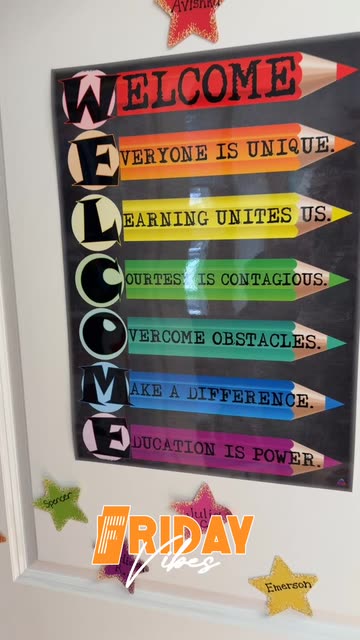 Avishka
WELCOME
EVERYONE IS UNIQUE.
LEARNING UNITES US.
COURTESY IS CONTAGIOUS.
OVERCOME OBSTACLES.
MAKE A DIFFERENCE.
EDUCATION IS POWER.
Spencer
FRIDAY
Vibes
Emerson